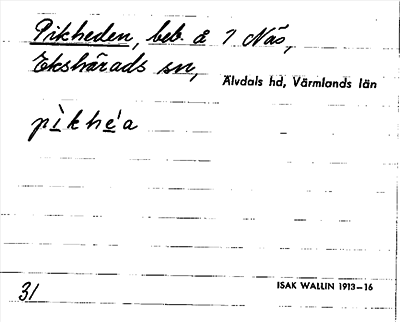 Pikheden, beb. å 7 Näs,
Ekshärads sn,
Älvdals hd, Värmlands län
pìkhéa
31
ISAK WALLIN 1913–16